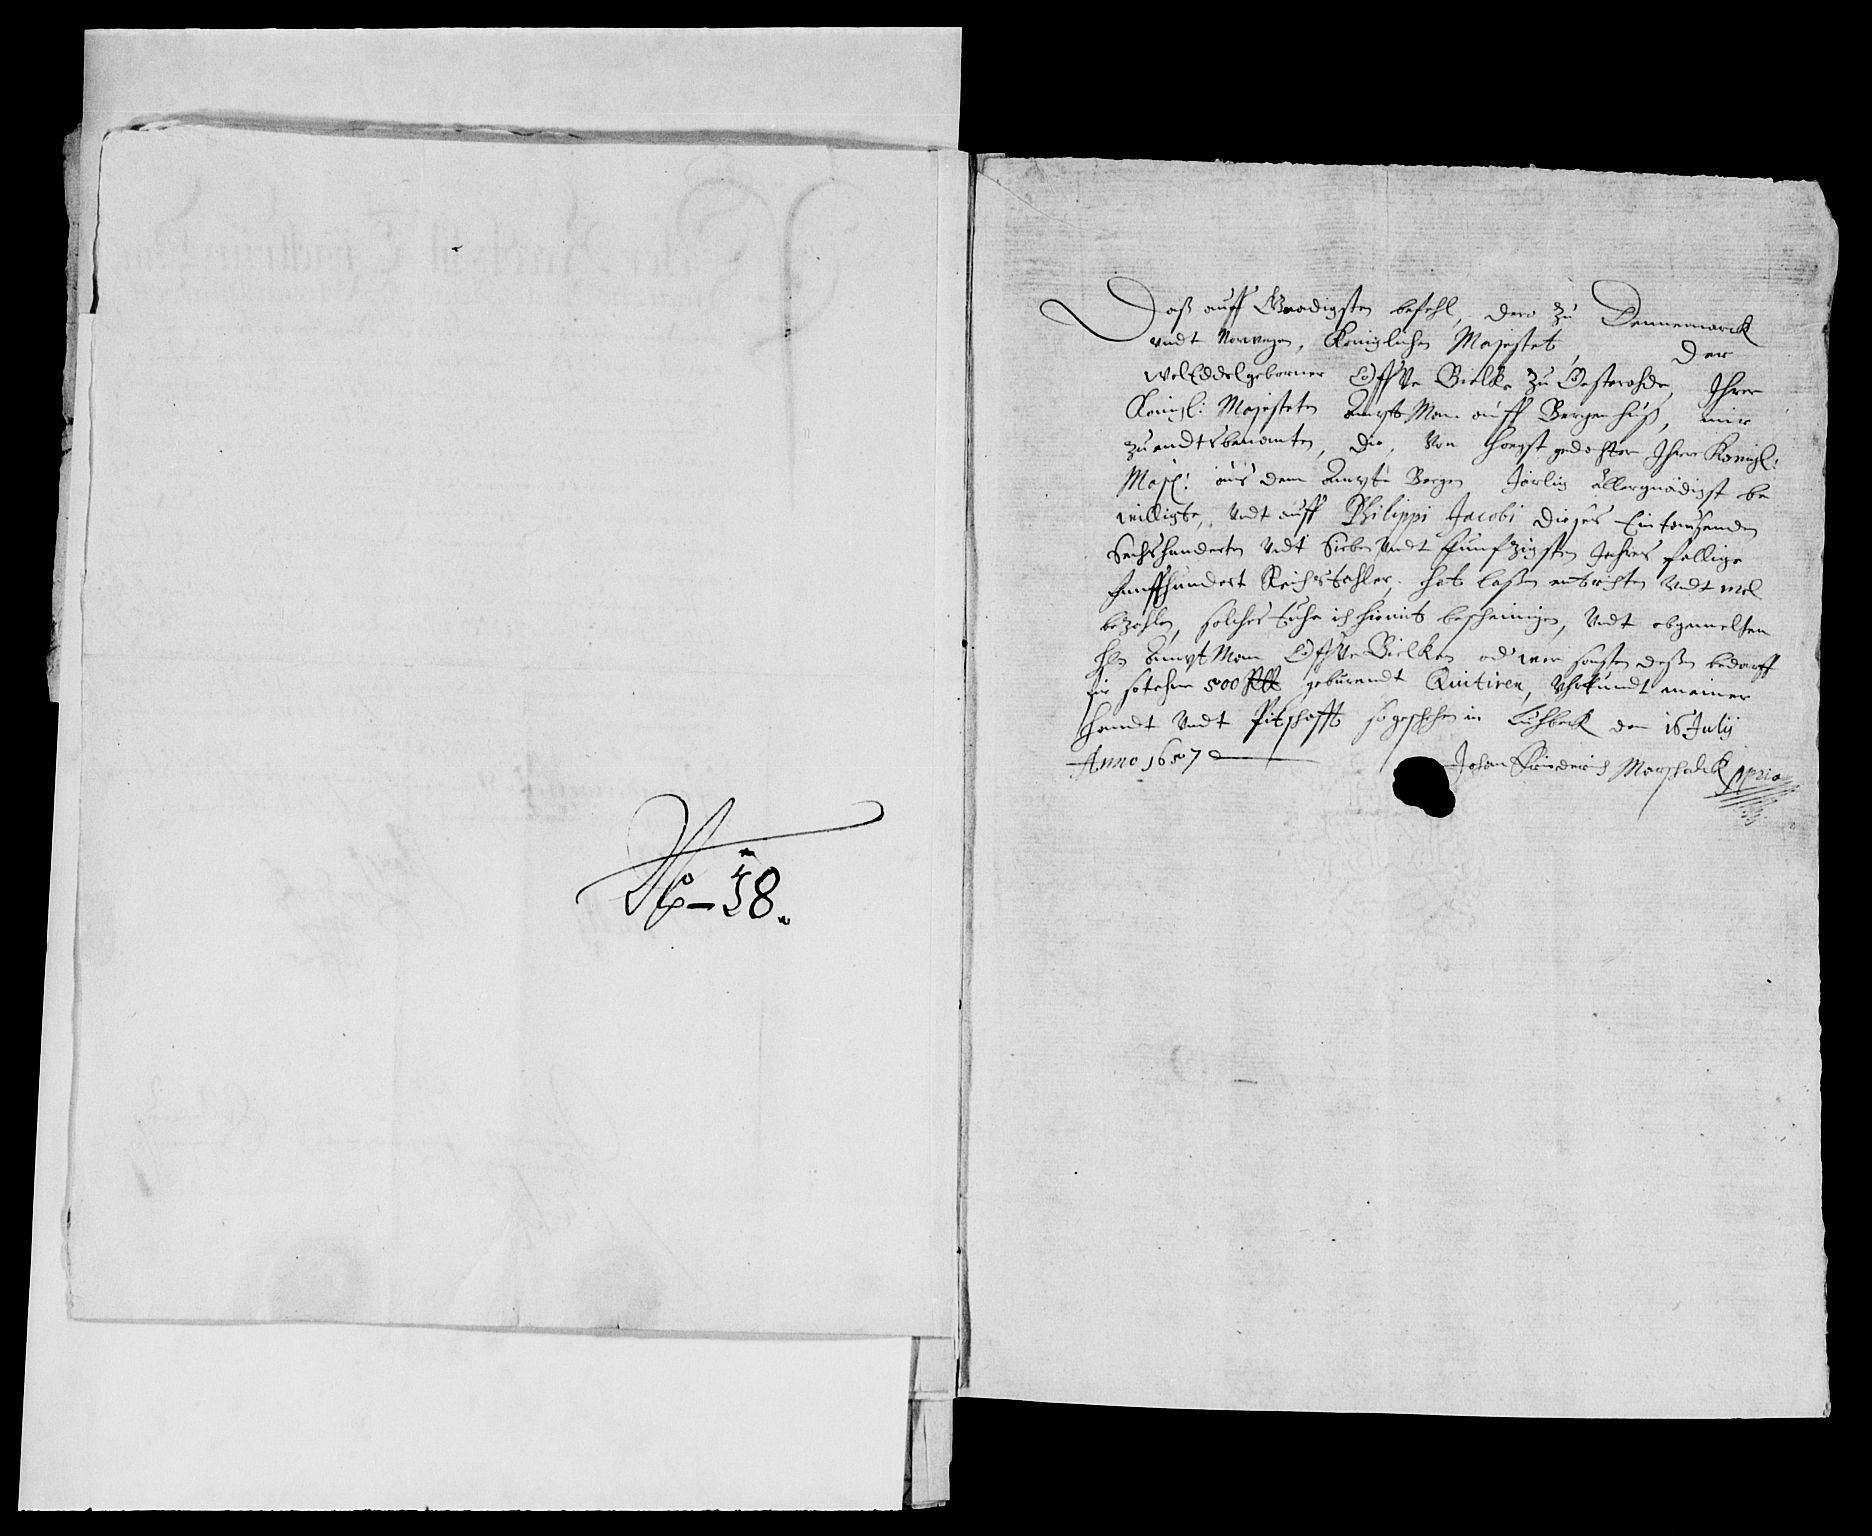 No 58.
Daß auff Gnadigsten befehl, dero zu Dennemarck
undt Norwegen, Königlichen Majestet, Der
WolEddelgeborner Offve Bielke zu Oesterohde, Ihrer
Königl: Majesteten AmptMan auff Bergenhuß, mir
zuendtsbenanten, die, Von hoegst gedachter Ihrer Königl:
Mays: aus dem Ampte Bergen Jarlig allergnädigst be
willigte, Undt auff Philippi Jacobi dieses Eintausenden
Sechshunderten Undt Sieben Undt funfzigsten Jahres fellige
funffhundert Reichsthaler, hat laßen entrichten Undt wol
bezahlen, solches tuhe ich hiemit bescheinigen, Undt obgemelten
Hln AmptMan Offve Bielken od wer sonsten deßen bedarff
für sotahne 500 Rtt geburendt Quitiren, Uhrkundt meiner
handt Undt Pitschafft so geschehen in Lühbeck den 16 July
Anno 1657
Johan Friederich Marschalck Mpria